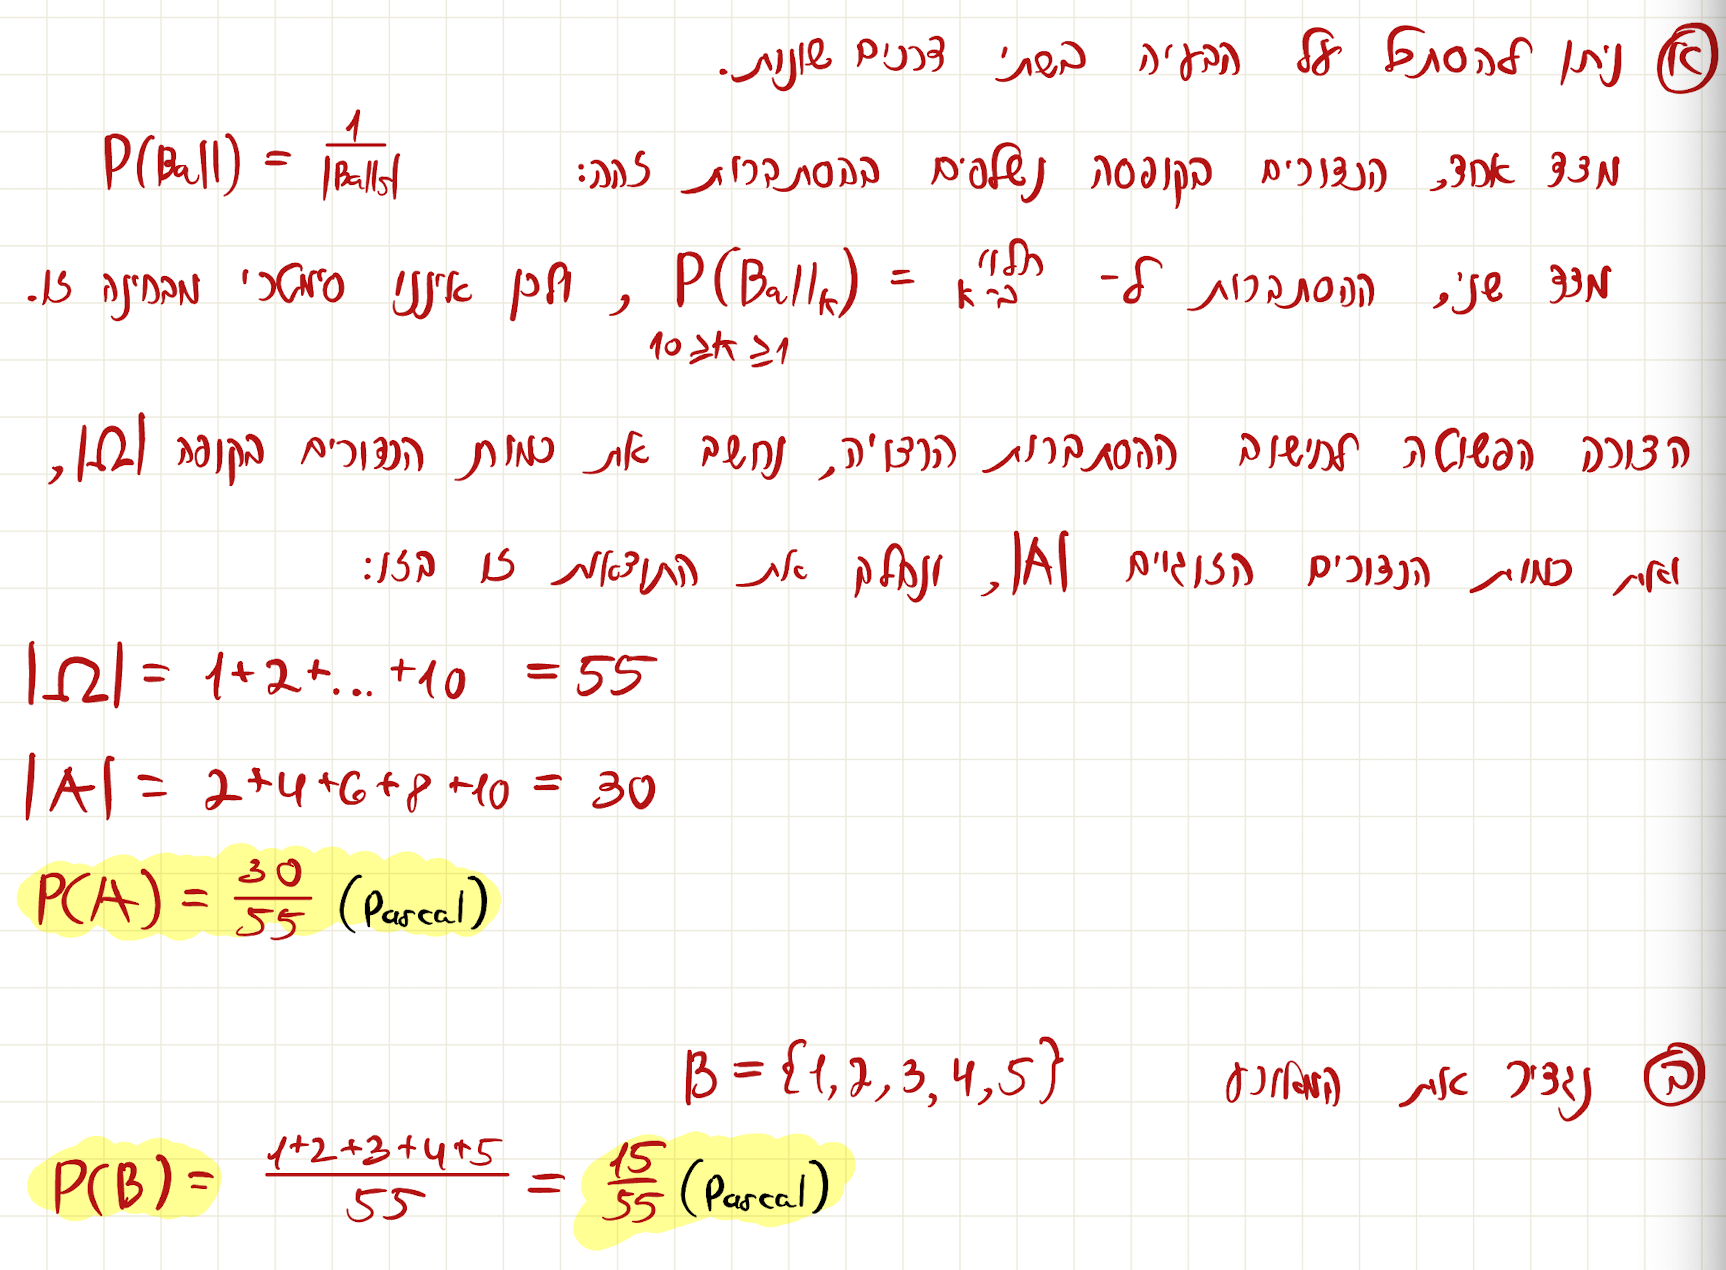 א ניתן להסתכל על הבעיה בשתי דרכים שונות.
מצד אחד, הכדורים בקופסה נשלפים בהסתברות זהה: P(Ball) = 1/|Balls|
מצד שני, ההסתברות ל- P(Ballₖ) = תלוי ב-k, ולכן איננו סימטרי מבחינה זו.
10 ≥ k ≥ 1
הצורה הפשוטה לחישוב ההסתברות הרצויה, נחשב את כמות הכדורים בקופה |Ω|,
ואת כמות הכדורים הזוגיים |A|, ונחלק את התוצאות זו בזו:
|Ω| = 1+2+...+10 = 55
|A| = 2+4+6+8+10 = 30
P(A) = 30/55 (Pascal)
ב נגדיר את המאורע B = {1,2,3,4,5}
P(B) = (1+2+3+4+5)/55 = 15/55 (Pascal)